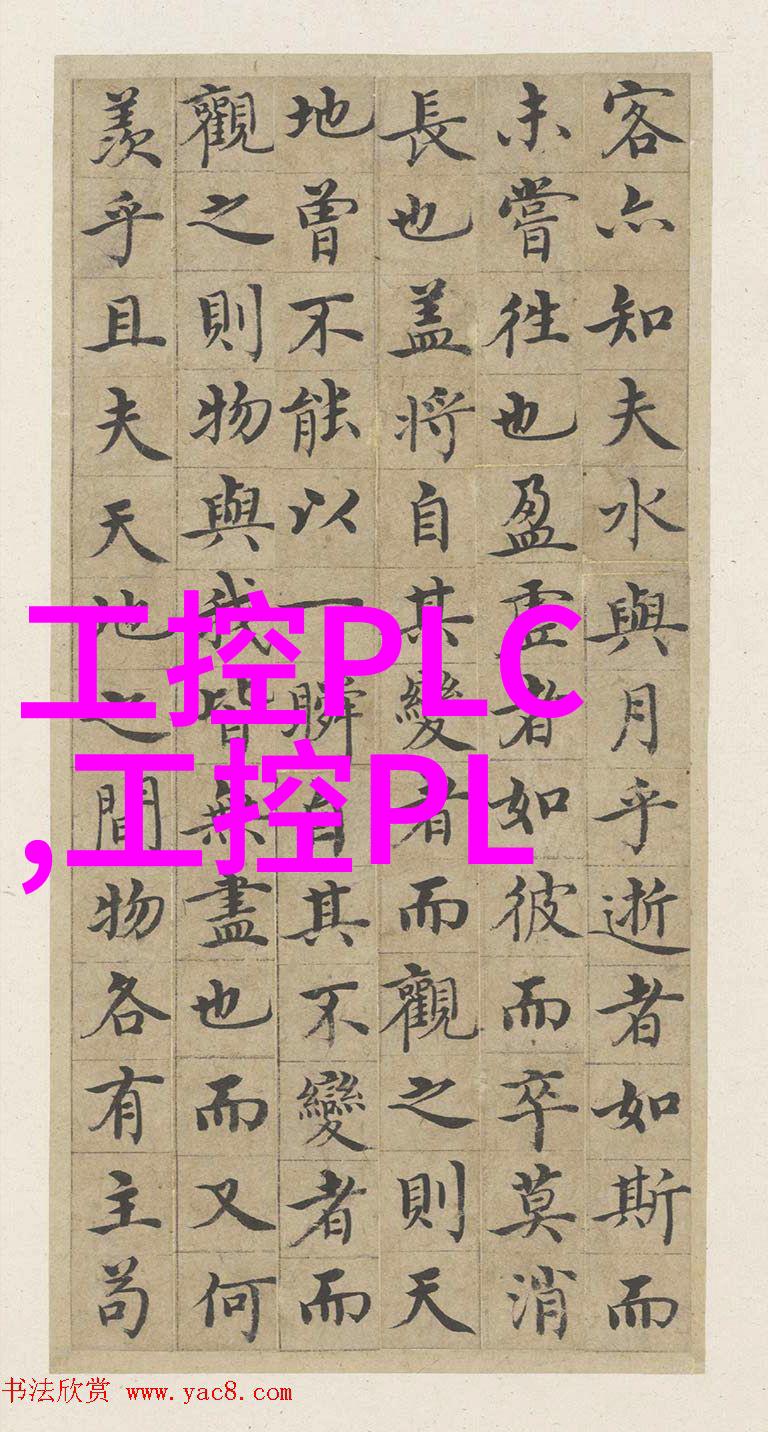 客亦知夫水與月乎逝者如斯而
未嘗往也盈虛者如彼而卒莫消
長也盖將自其變者而觀之則天
地曽不能以一瞬自其不變者而
觀之則物與我皆無盡也而又何
羨乎且夫天地之間物各有主苟
工控PLC
,工控PL
书法欣赏 www.yac8.com